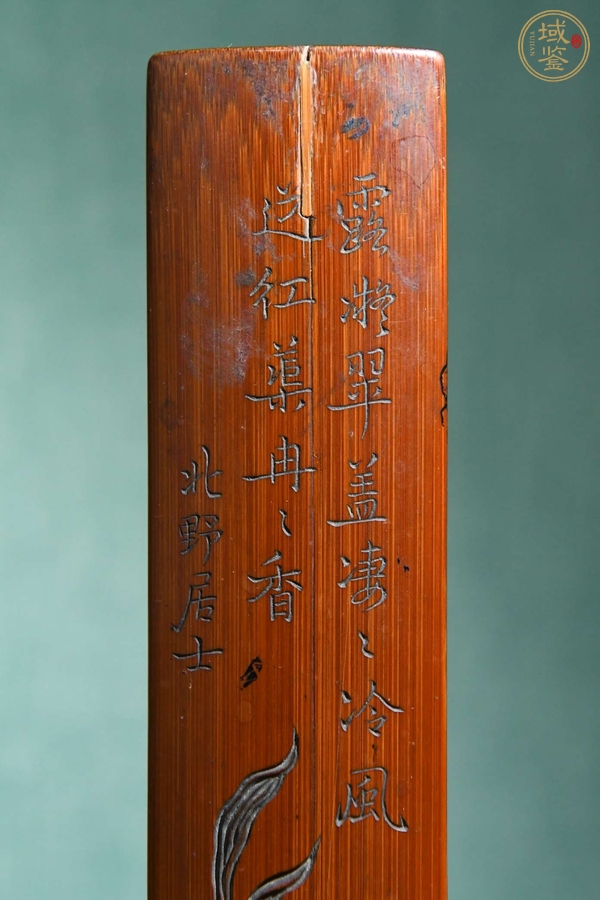 露凝翠盖凄〻冷风
送红蕖冉〻香
北野居士
域鉴
YUJIAN